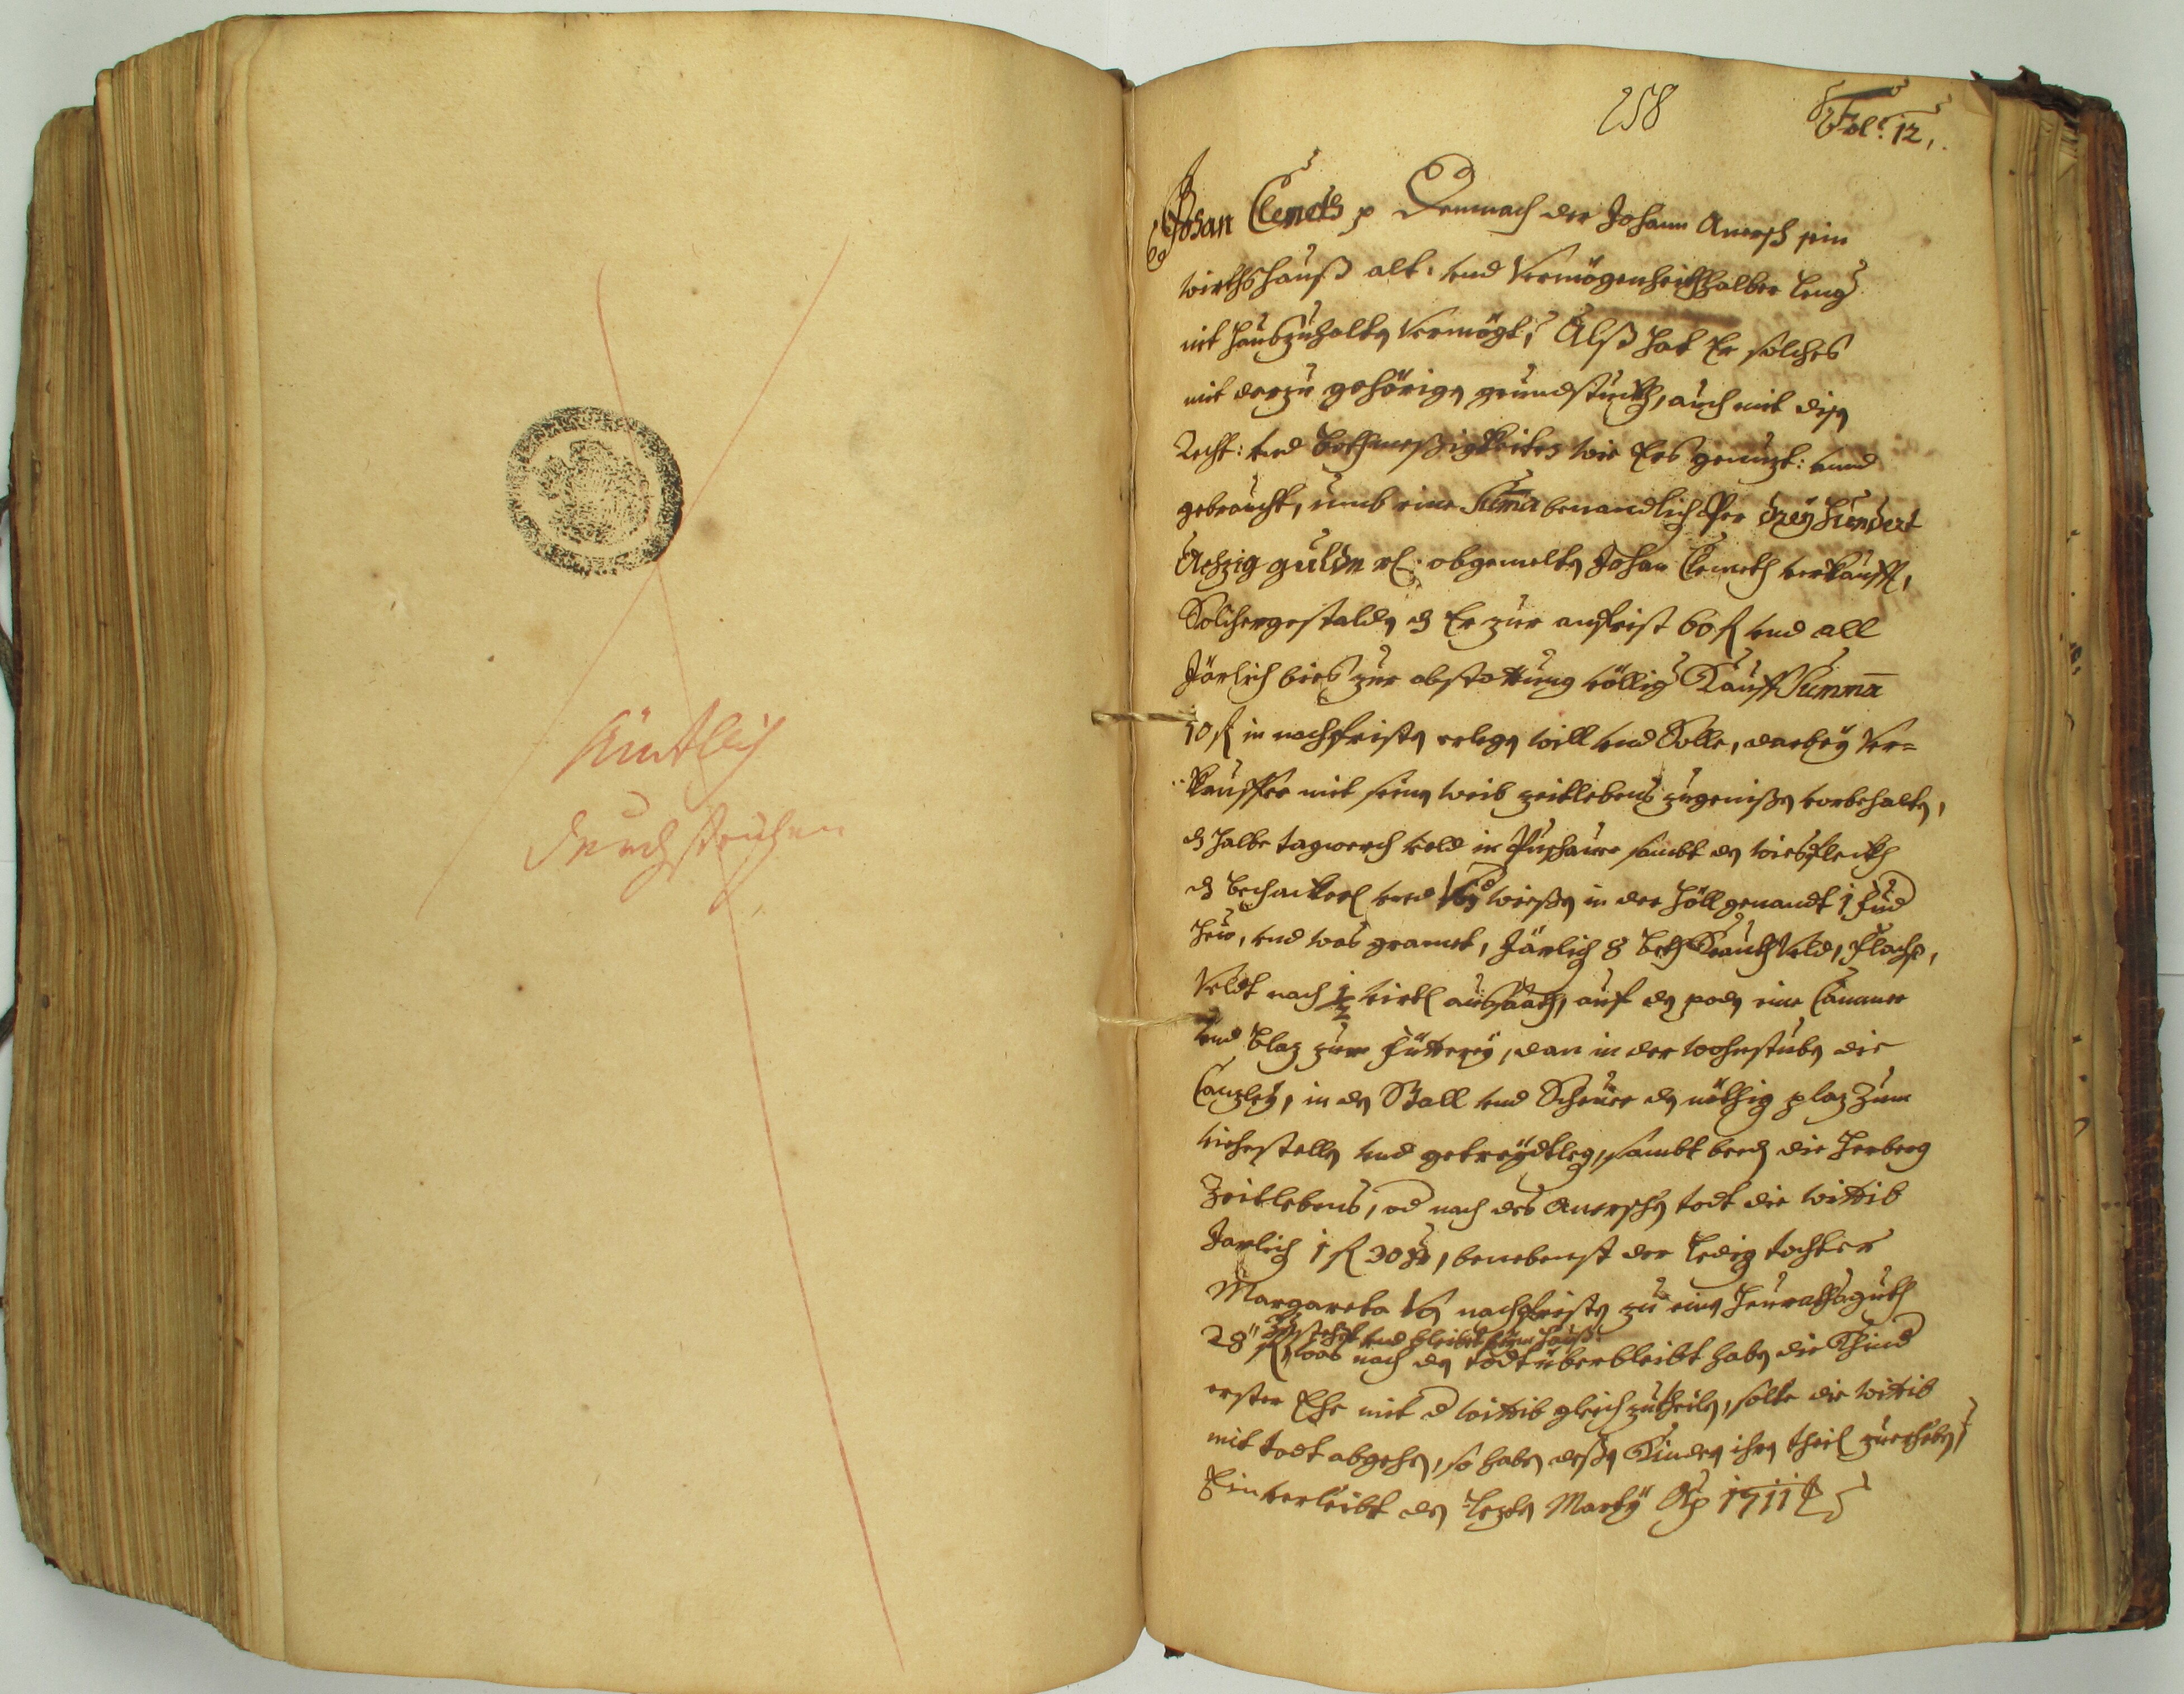 Ämtlich
durchstrichen
258
Fol: 12,
Johan Clemeth p Demnach der Johann Auersch sein
wirthshauß alt: und Vermögenheithhalber leng
nit haußzuhalten Vermögt, Alß hat Er solches
mit darzu gehörigen grundstuckhen, auch mit disen
Recht: und wie Ers genuzt: unnd
gebraucht, umb eine Suma benandlich Per Dreyhundert
Achzig gulden obgemelten Johan Clemeth verkaufft,
Solchergestalden dz Er zur angfrist 60 fl und all
Järlich bies zur abstattung völlig Kauff Summa
10 fl in nachfristen erlegen will und Solle, darbey Ver=
kauffer mit seinen weib zeitlebens zugenißen vorbehalten,
dz halbe tagwerch veld in sambt den wiesfleckh
dz und wießen in der Höll genandt 1 fud
heu, und was gramet, Järlich 8 beth Krauth Veld, flachs,
Veldt nach 1/2 virtl außsaath, auf den poden eine Cammer
und blaz zur fütterey, dan in der wohnstuben die
in den Stall und Scheuer den nöthig plaz zum
viehestellen und getreydtleg, sambt beed die Herberg
Zeitlebens, od nach des Auerschen todt die wittib
Jarlich 1 fl 30 xr, benebenst der ledig tochter
Margareta Von nachfristen zu einen Heurathsguth
28" fl, was nach den todt überbleibt haben die Khind
und bleibet beim hauß.
erster Ehe mit d wittib gleich zutheilen, solte die wittib
mit todt abgehen, so haben deßen Kinder ihren theil zuerheben,
Einverleibt den lezten Marty Ao 1711